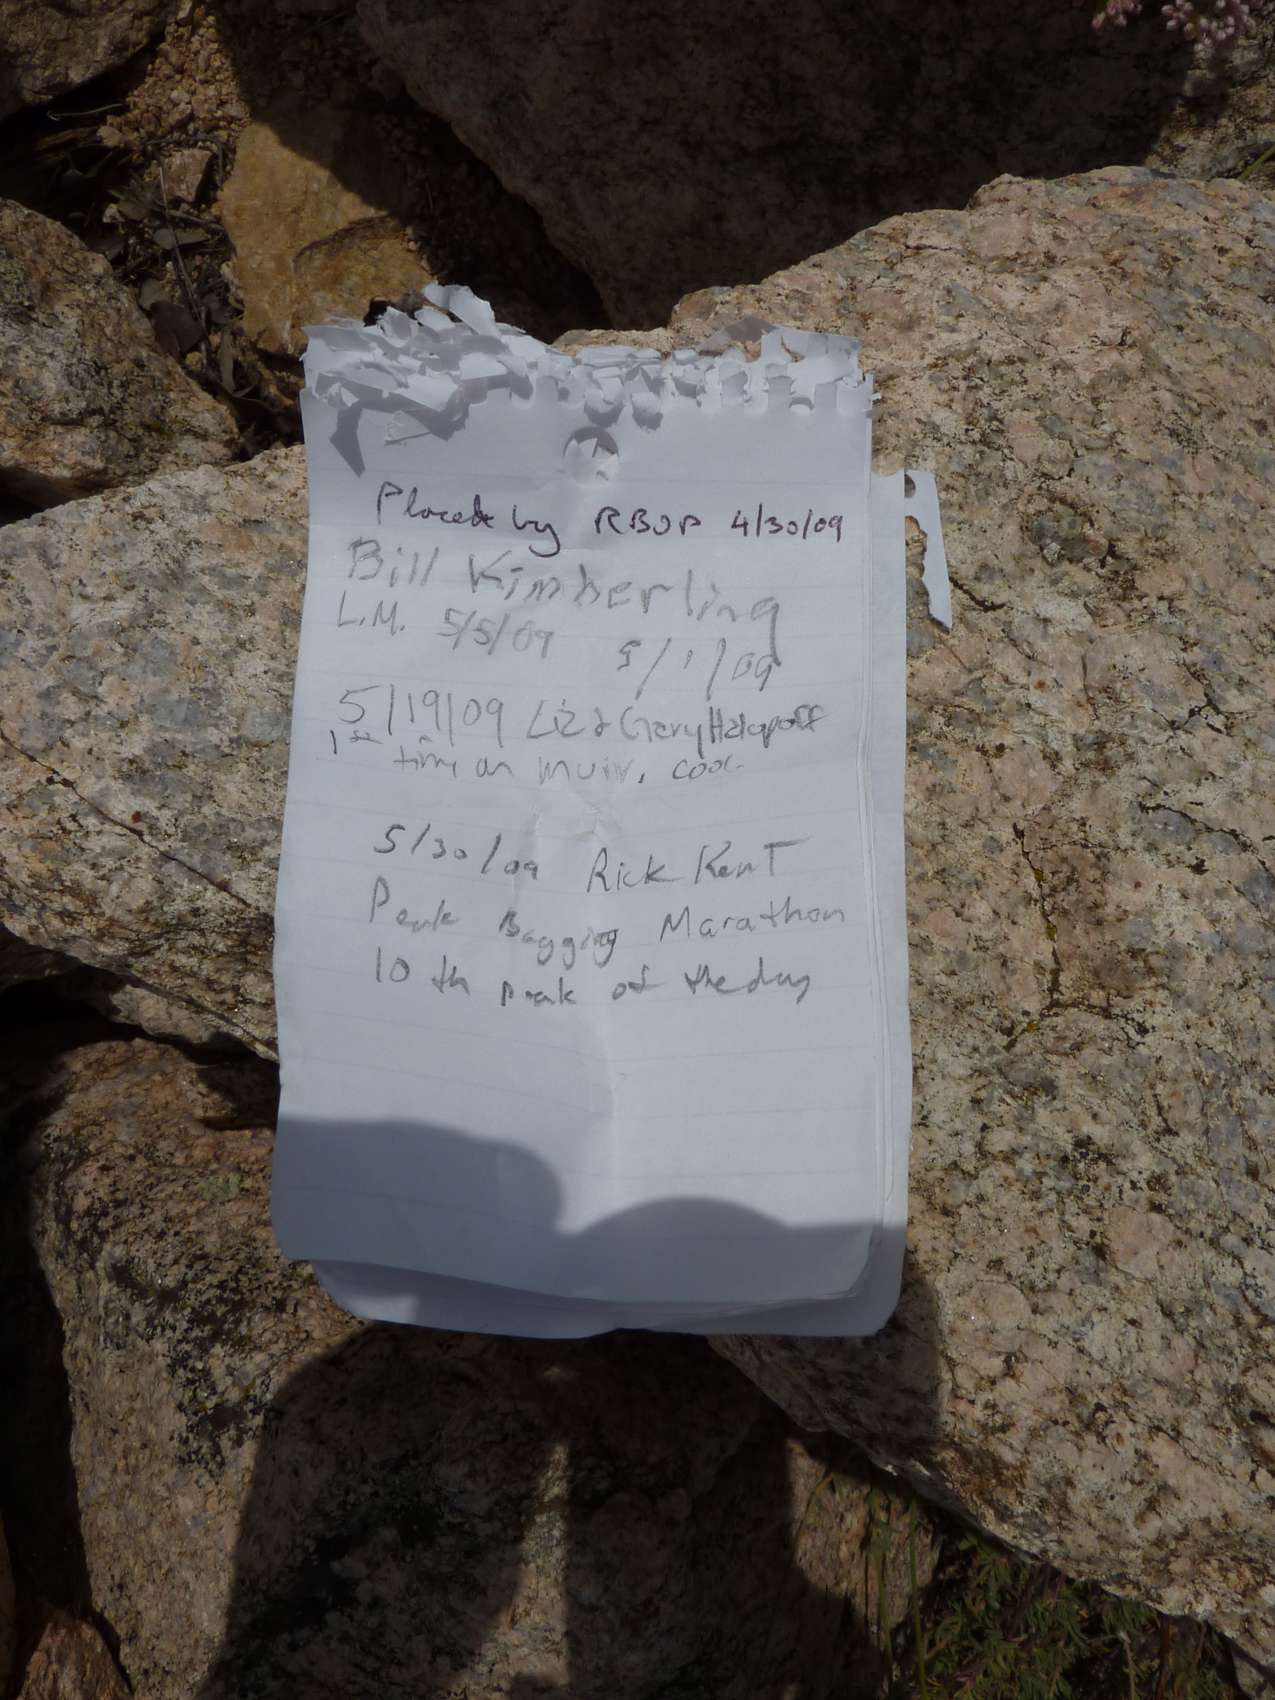 Placed by RBOP 4/30/09
Bill Kimberling
L.M. 5/5/09
5/1/09
5/19/09 Liz & Gary Halapoff
1st time on Muir, cool.
5/30/09 Rick Kent
Peak Bagging Marathon
10th peak of the day